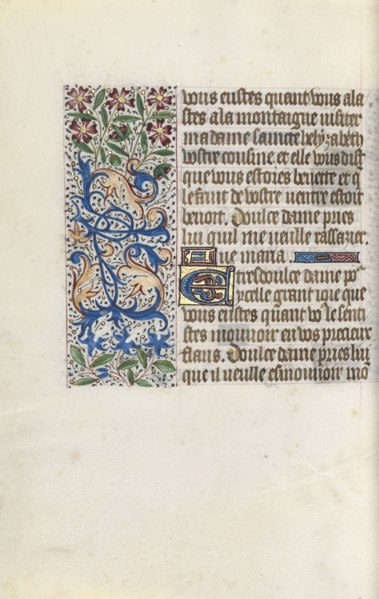 vous eustes quant vous ala
stes a la montaigne visiter
ma dame saincte helyzabeth
vostre cousine et elle vous dist
que vous estoies benette et q̄
le fruit de vostre ventre estoit
benoit. Doulce dame pries
lui que il me vueille rassazier.
Aue maria.
E tresdoulce dame po²
ycelle grant ioie que
vous eustes quant vo⁹ le senti
stes mouuoir en vos precieux
flans. Doulce dame pries lui
que il vueille esmouuoir mō